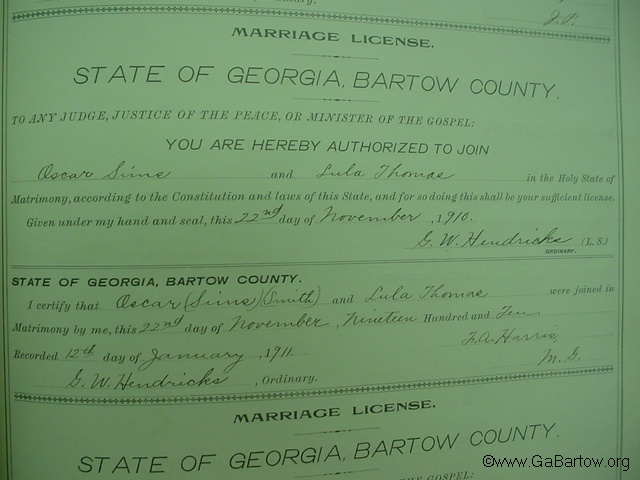 J. P.
MARRIAGE LICENSE.
STATE OF GEORGIA, BARTOW COUNTY.
TO ANY JUDGE, JUSTICE OF THE PEACE, OR MINISTER OF THE GOSPEL:
YOU ARE HEREBY AUTHORIZED TO JOIN
Oscar Sims and Lula Thomas in the Holy State of
Matrimony, according to the Constitution and laws of this State, and for so doing this shall be your sufficient license.
Given under my hand and seal, this 22nd day of November, 1910.
G. W. Hendricks (L. S.)
ORDINARY.
STATE OF GEORGIA, BARTOW COUNTY.
I certify that Oscar (Sims) (Smith) and Lula Thomas were joined in
Matrimony by me, this 22nd day of November, Nineteen Hundred and Ten
Recorded 12th day of January, 1911. F. A. Harris,
G. W. Hendricks, Ordinary. M. G.
MARRIAGE LICENSE.
STATE OF GEORGIA, BARTOW COUNTY.
THE GOSPEL:
©www.GaBartow.org